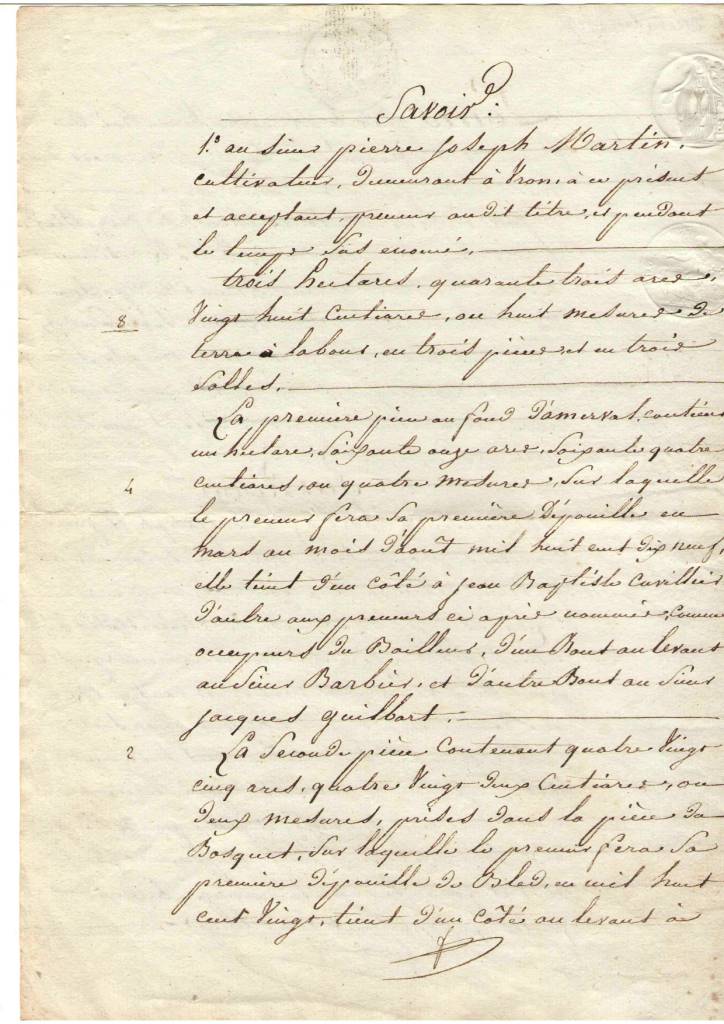 Savoir :
1.° au sieur pierre Joseph Martin,
cultivateur, demeurant à Vron, à ce présent
et acceptant, preneur audit titre, et pendant
le temps sus énoncé,
trois hectares, quarante trois ares,
8 Vingt huit Centiares, ou huit mesures de
terre à labour, en trois pièces et en trois
Solles.
La première pièce au fond d'amerval, contient
un hectare, soixante onze ares, soixante quatre
4 centiares, ou quatre mesures, sur laquelle
le preneur fera sa première dépouille en
mars au mois d'août mil huit cent dix neuf,
elle tient d'un côté à jean Baptiste Cuvillier
d'autre aux preneurs ci après nommés, comme
occupeurs du Bailleur, d'un Bout au levant
au sieur Barbier, et d'autre Bout au sieur
jacques guilbart.
2 La Seconde pièce Contenant quatre Vingt
cinq ares, quatre Vingt deux Centiares, ou
deux mesures, prises dans la pièce du
Bosquet, sur laquelle le preneur fera sa
première dépouille de Bled, en mil huit
cent Vingt, tient d'un côté au levant à